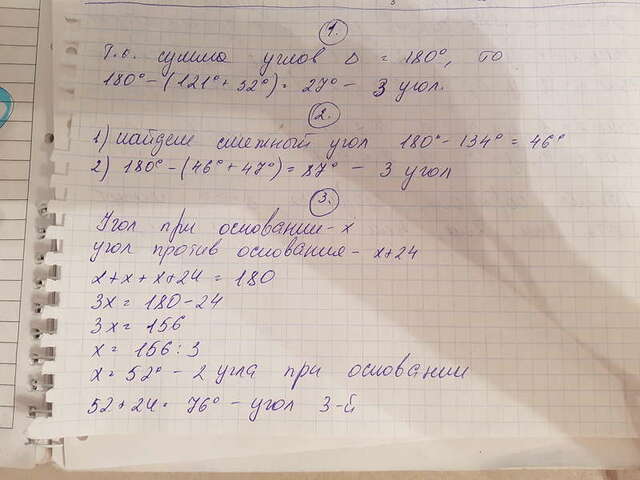 1.
Т.о. сумма углов Δ = 180°, то
180° - (121° + 32°) = 27° - 3 угол.
2.
1) найдем смежный угол 180° - 134° = 46°
2) 180° - (46° + 47°) = 87° - 3 угол
3.
Угол при основании - x
угол против основания - x+24
x+x+x+24 = 180
3x = 180-24
3x = 156
x = 156 : 3
x = 52° - 2 угла при основании
52+24 = 76° - угол 3-й